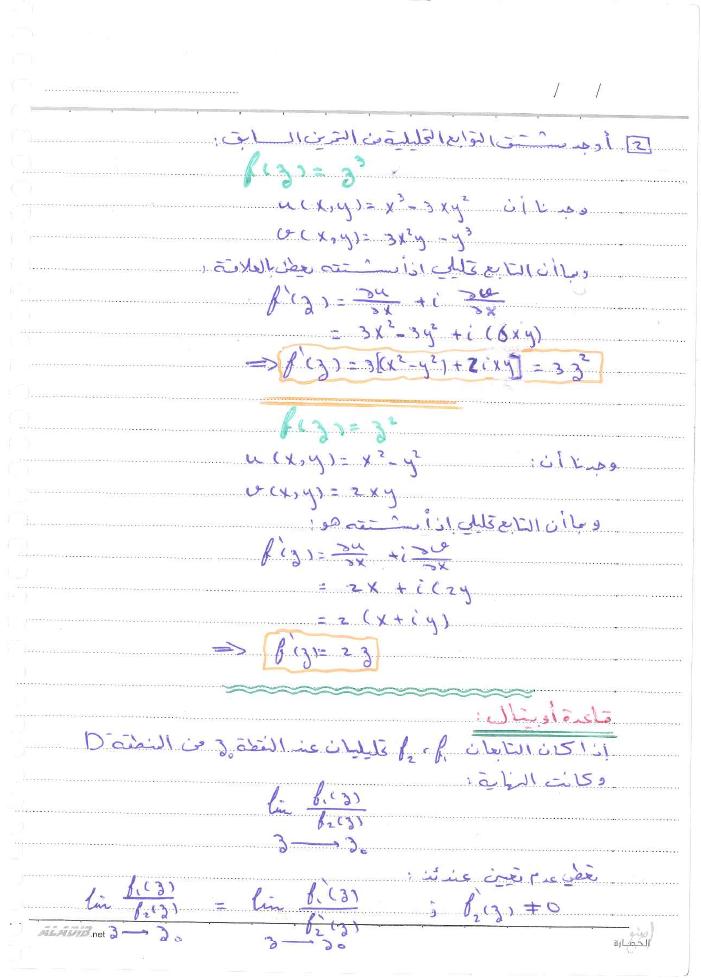 / /
2 أوجد مشتق التوابع التحليلية من التمرين السابق:
f(z) = z³
وجدنا أن u(x,y) = x³ - 3xy²
v(x,y) = 3x²y - y³
وبما أن التابع تحليلي إذاً مشتقه يعطى بالعلاقة:
f'(z) = ∂u/∂x + i ∂v/∂x
= 3x² - 3y² + i(6xy)
⇒ f'(z) = 3[(x² - y²) + 2ixy] = 3z²
f(z) = z²
وجدنا أن: u(x,y) = x² - y²
v(x,y) = 2xy
وبما أن التابع تحليلي إذاً مشتقه هو:
f'(z) = ∂u/∂x + i ∂v/∂x
= 2x + i(2y
= 2(x + iy)
⇒ f'(z) = 2z
قاعدة أوبيتال:
إذا كان التابعان f₁، f₂ تحليليان عند النقطة z₀ من المنطقة D
وكانت النهاية:
lim f₁(z)/f₂(z)
z → z₀
تعطي عدم تعيين عندئذ:
lim f₁(z)/f₂(z) = lim f₁'(z)/f₂'(z) ; f₂'(z) ≠ 0
z → z₀ z → z₀
.net
الحضارة